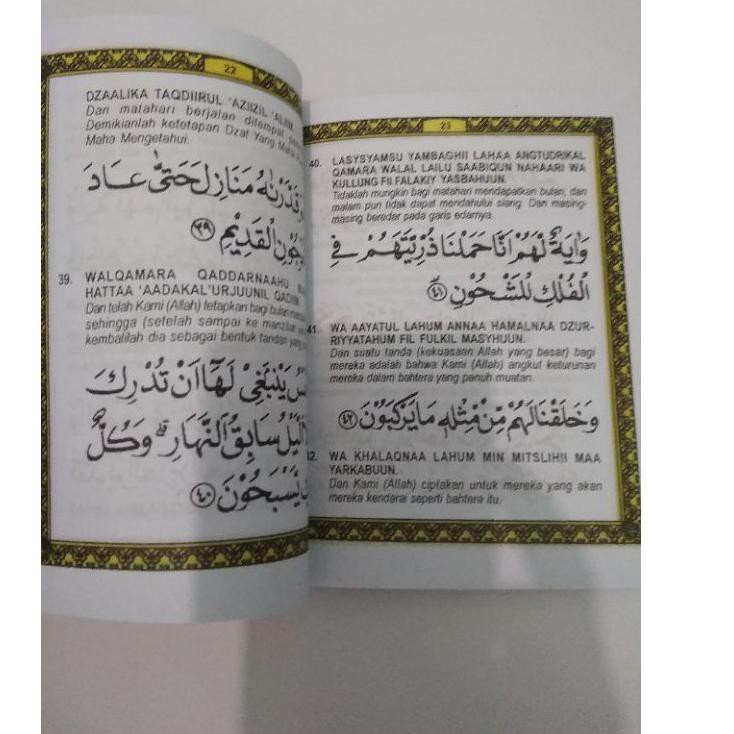 22
DZAALIKA TAQDIIRUL 'AZIIZIL 'ALIIM.
Dan matahari berjalan ditempat
Demikianlah ketetapan Dzat Yang Maha
Maha Mengetahui.
قَدَّرْنٰهُ مَنَازِلَ حَتّٰى عَادَ
الْقَدِيْمِ ﴿٣٩﴾
39. WALQAMARA QADDARNAAHU
HATTAA 'AADAKAL'URJUUNIL QADIIM
Dan telah Kami (Allah) tetapkan bagi bulan
sehingga (setelah sampai ke manzilah
kembalilah dia sebagai bentuk tandan yang
يَنْۢبَغِيْ لَهَآ اَنْ تُدْرِكَ
الَّيْلُ سَابِقُ النَّهَارِ ۗ وَكُلٌّ
يَّسْبَحُوْنَ ﴿٤٠﴾
23
40. LASYSYAMSU YAMBAGHII LAHAA ANGTUDRIKAL
QAMARA WALAL LAILU SAABIQUN NAHAARI WA
KULLUNG FII FALAKIY YASBAHUUN.
Tidaklah mungkin bagi matahari mendapatkan bulan, dan
malam pun tidak dapat mendahului siang. Dan masing-
masing beredar pada garis edarnya.
وَاٰيَةٌ لَّهُمْ اَنَّا حَمَلْنَا ذُرِّيَّتَهُمْ فِى
الْفُلْكِ الْمَشْحُوْنِ ﴿٤١﴾
41. WA AAYATUL LAHUM ANNAA HAMALNAA DZUR-
RIYYATAHUM FIL FULKIL MASYHUUN.
Dan suatu tanda (kekuasaan Allah yang besar) bagi
mereka adalah bahwa Kami (Allah) angkut keturunan
mereka dalam bahtera yang penuh muatan.
وَخَلَقْنَا لَهُمْ مِّنْ مِّثْلِهٖ مَا يَرْكَبُوْنَ ﴿٤٢﴾
42. WA KHALAQNAA LAHUM MIN MITSLIHII MAA
YARKABUUN.
Dan Kami (Allah) ciptakan untuk mereka yang akan
mereka kendarai seperti bahtera itu.